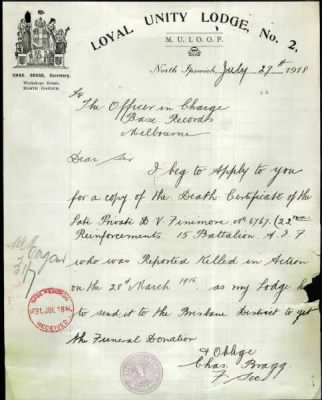 LOYAL UNITY LODGE, No. 2,
M. U. I. O. O. F.
CHAS. BRAGG, Secretary.
NORTH IPSWICH.
North Ipswich, July 27th 1918
To
The Officer in Charge
Base Records
Melbourne
Dear Sir
I beg to Apply to you
for a copy of the Death Certificate of the
Late Private D. V. Finimore No 6767. (22nd
Reinforcements 15 Battalion A. I. F
who was Reported Killed in Action
on the 28th March 1918. as my Lodge h
to send it to the Brisbane District to get
the Funeral Donation
& Oblige
Chas. Bragg
F Sec
31 JUL 1918
RECEIVED